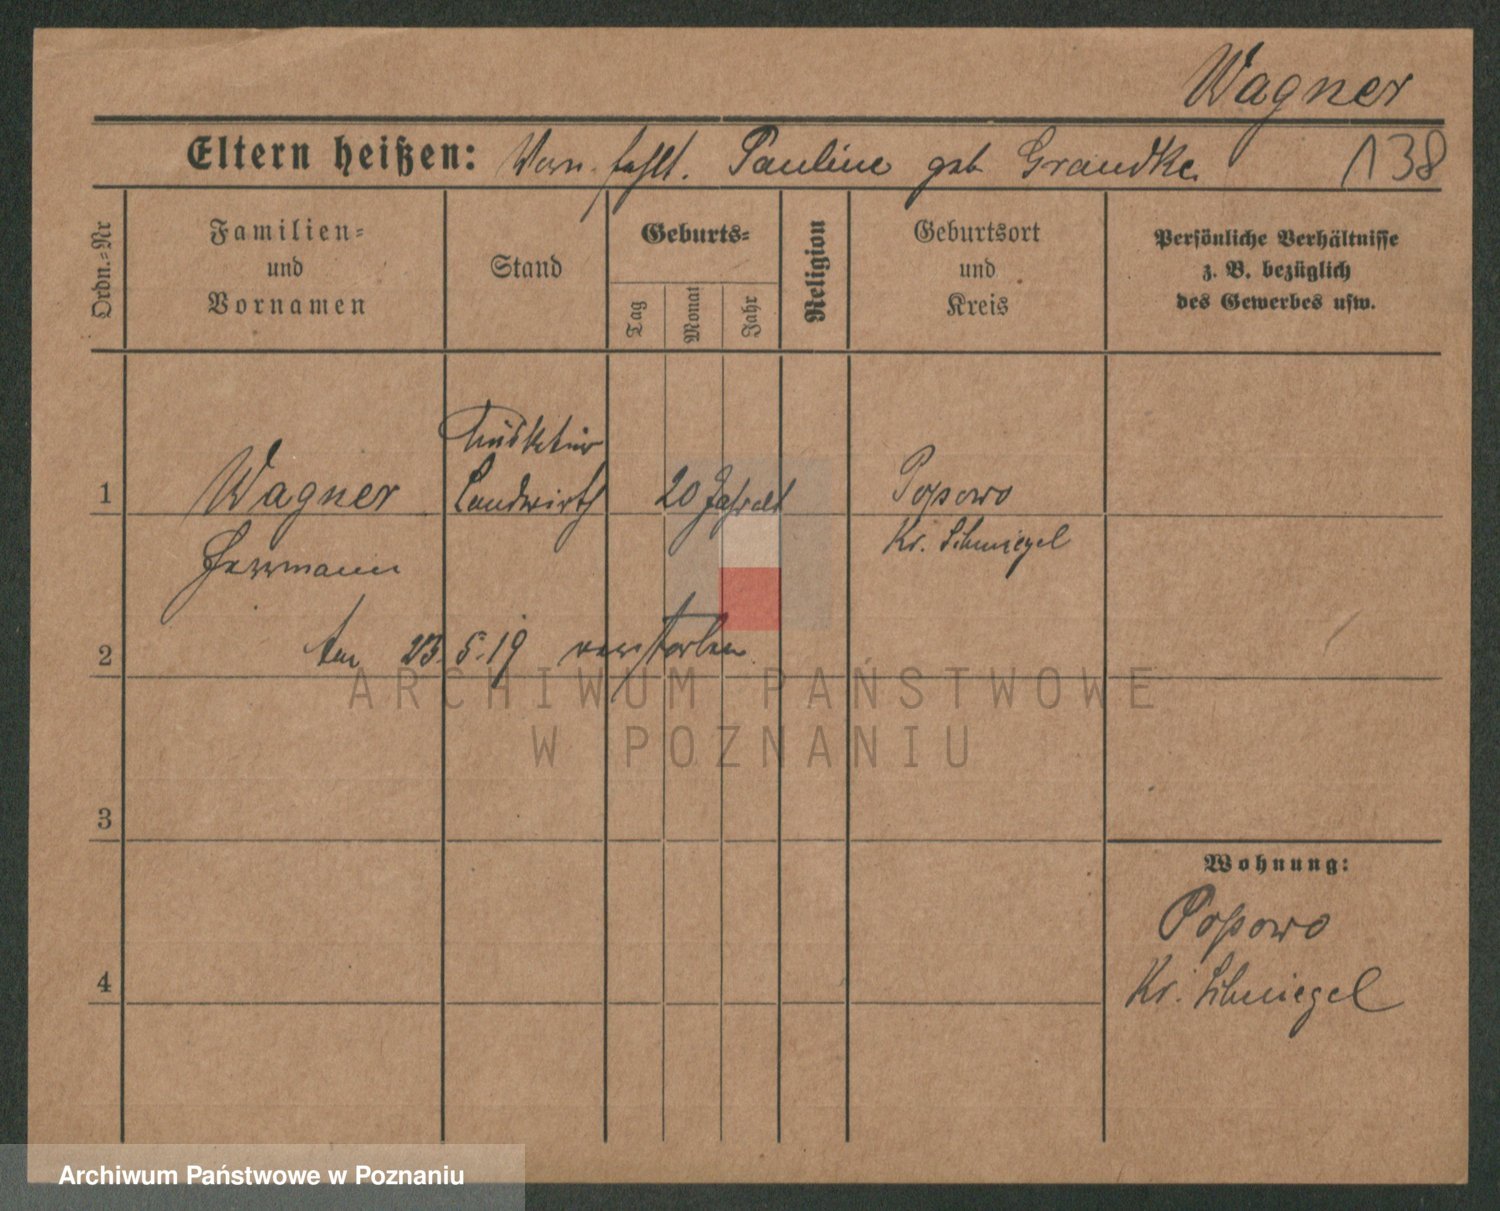 Wagner
Eltern heißen: Vorn. fehlt. Pauline geb Grandke.
138
Ordn.-Nr
Familien-
und
Vornamen
Stand
Geburts-
Tag
Monat
Jahr
Religion
Geburtsort
und
Kreis
Persönliche Verhältnisse
z. B. bezüglich
des Gewerbes usw.
Musketier
1 Wagner Landwirth 20 Jahralt Popowo
Herrmann Kr. Schmiegel
2 Am 23.5.19 verstorben.
ARCHIWUM PAŃSTWOWE
W POZNANIU
3
Wohnung:
Popowo
4 Kr. Schmiegel
Archiwum Państwowe w Poznaniu